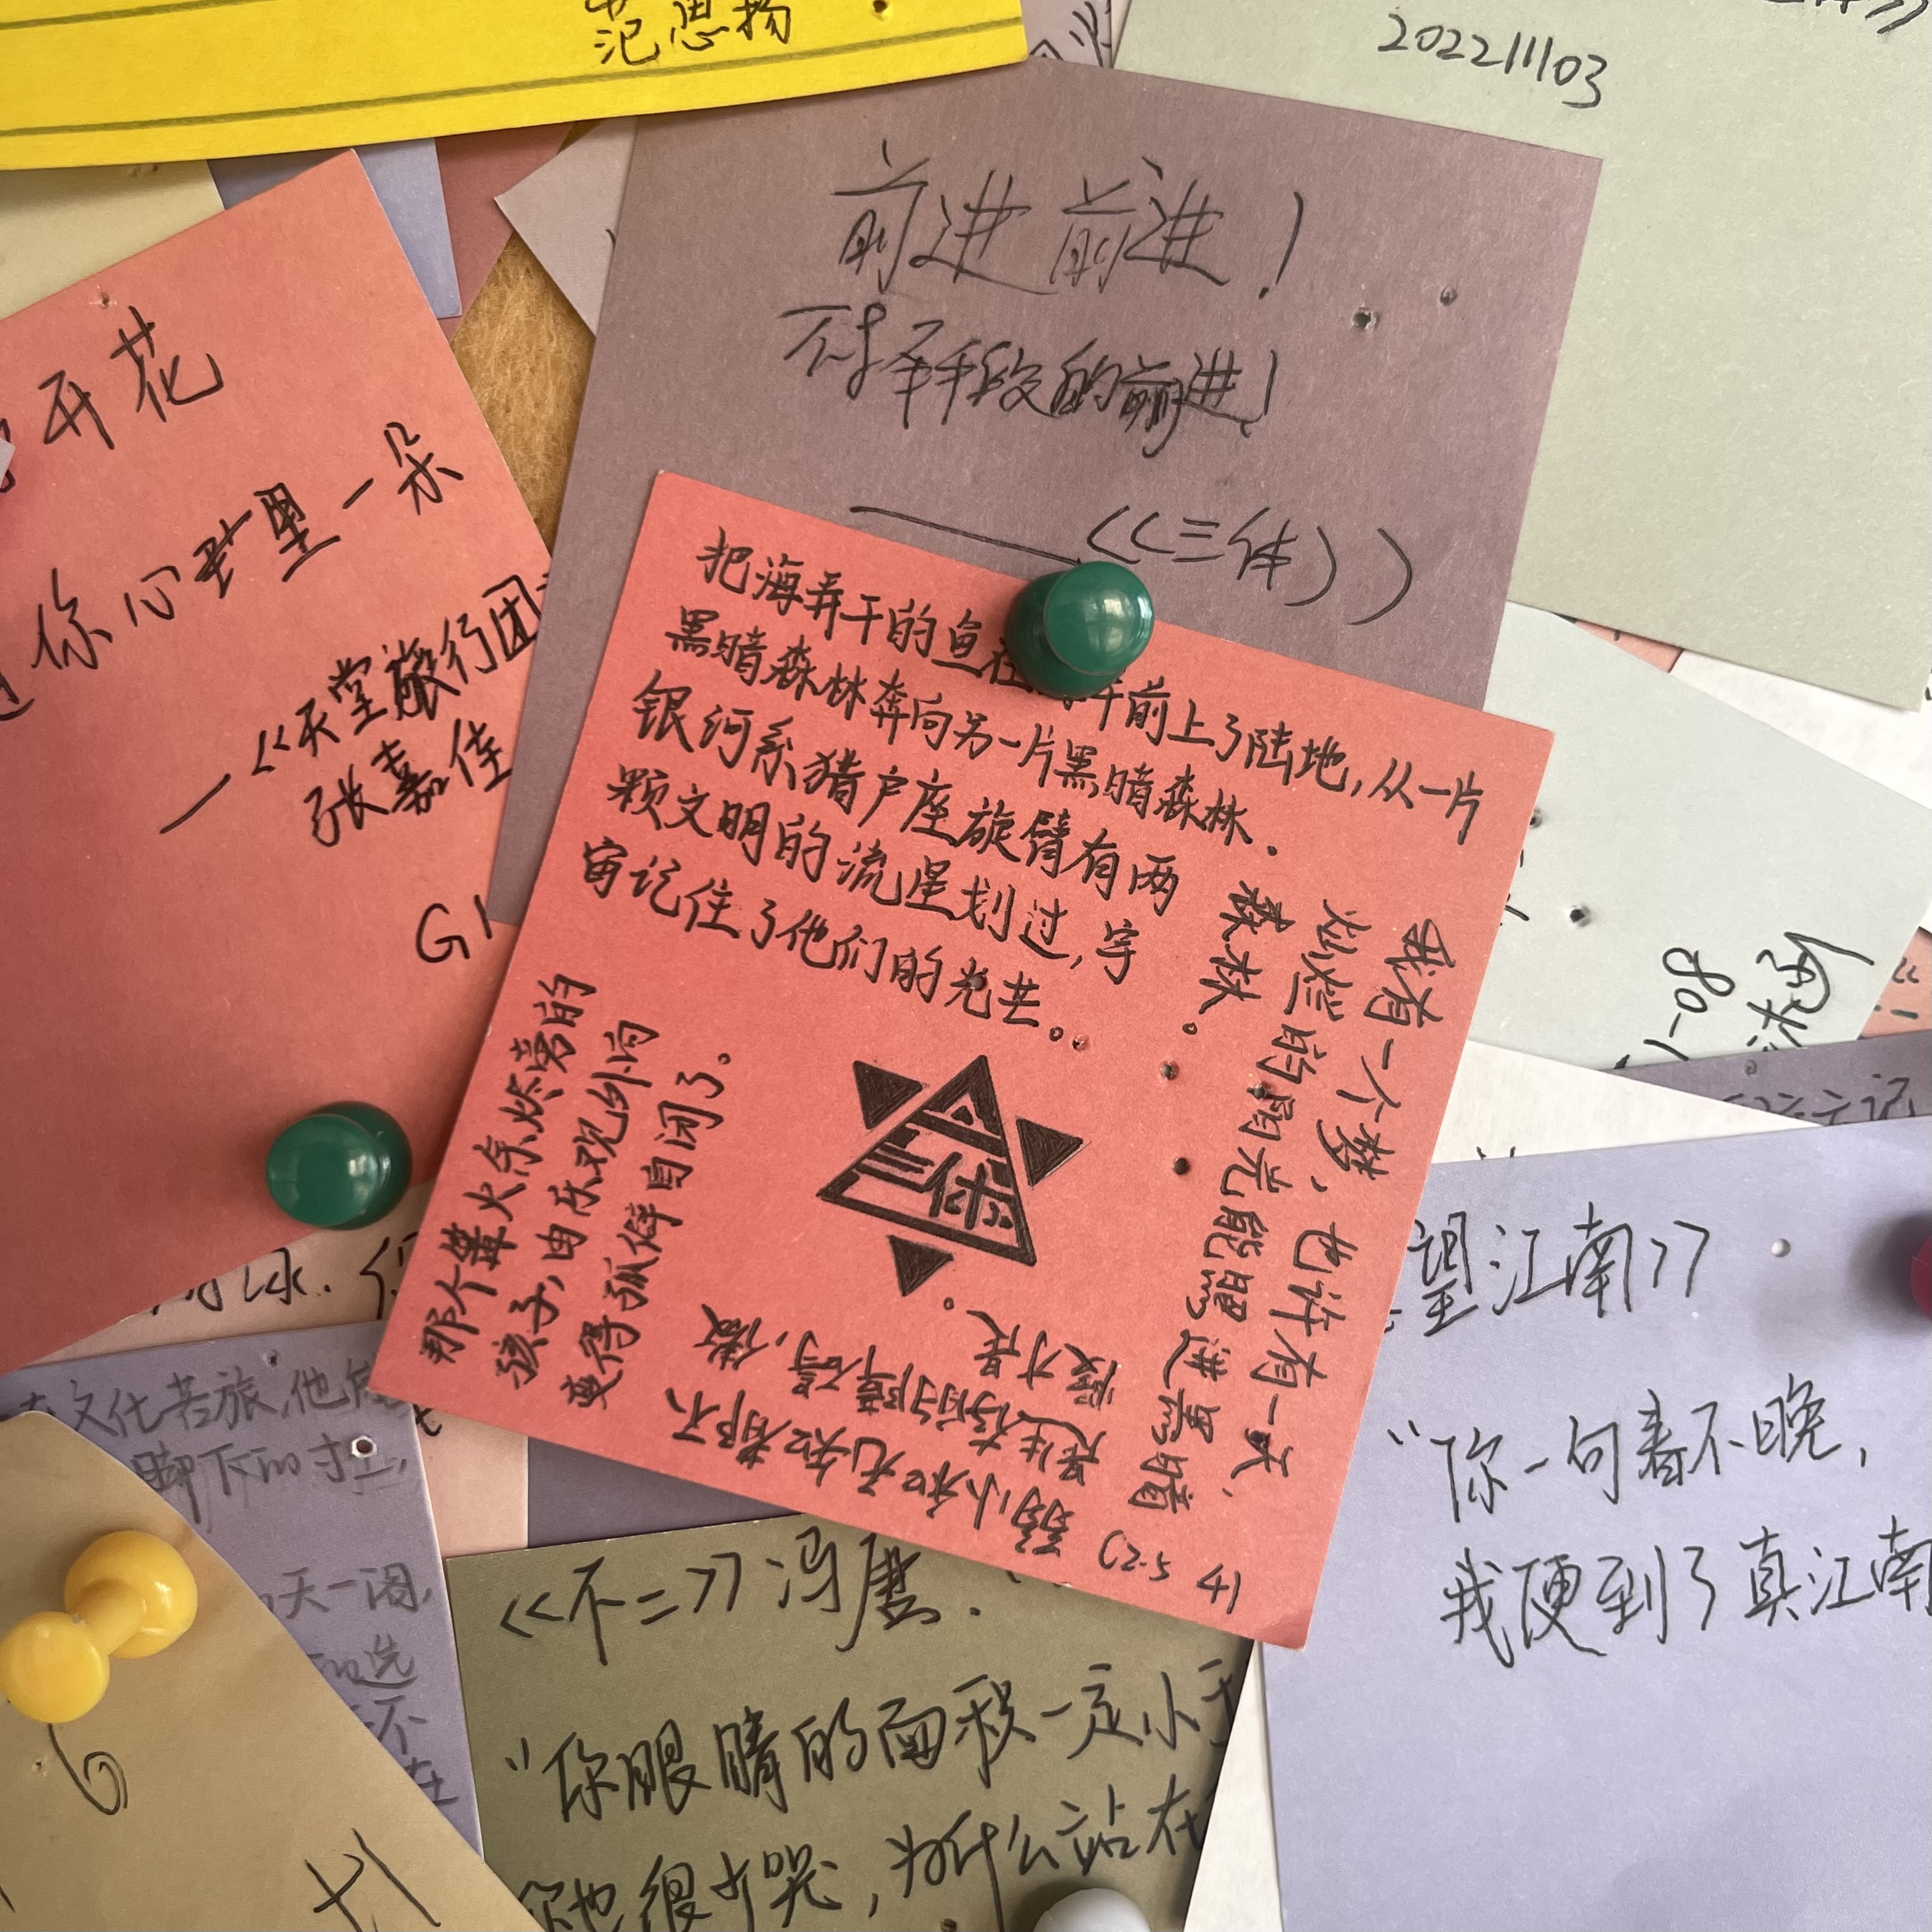 范思扬
20221103
前进前进！
不择手段的前进！
——《三体》
开花
你心里一朵
—《天堂旅行团
张嘉佳
G1
把海弄干的鱼在 年前上了陆地，从一片
黑暗森林奔向另一片黑暗森林.
银河系猎户座旋臂有两
颗文明的流星划过，宇
宙记住了他们的光芒。
我有一个梦，也许有一天，
灿烂的阳光能照进黑暗
森林。
弱小和无知都不
是生存的障碍，傲
慢才是。
那个篝火余烬旁的
孩子，由乐观外向
变得孤僻自闭了。
三体
80-1
望江南》
“你一句春不晚，
我便到了真江南
文化苦旅
脚下的
天一阁，
《不二》冯唐.
“你眼睛的面积一定小于
也很少哭，为什么站在
6